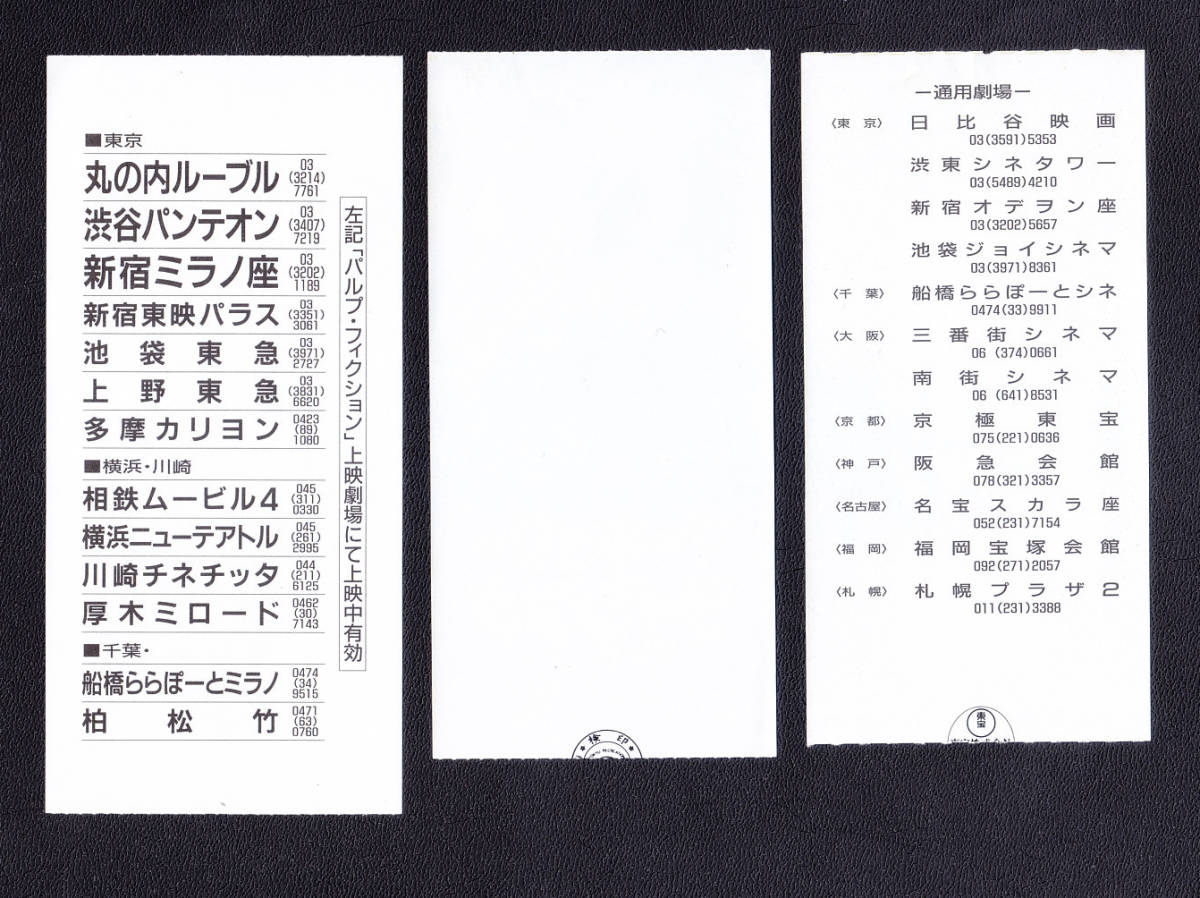 ■東京
丸の内ルーブル 03(3214)7761
渋谷パンテオン 03(3407)7219
新宿ミラノ座 03(3202)1189
新宿東映パラス 03(3351)3061
池袋東急 03(3971)2727
上野東急 03(3831)6620
多摩カリヨン 0423(89)1080
■横浜・川崎
相鉄ムービル4 045(311)0330
横浜ニューテアトル 045(261)2995
川崎チネチッタ 044(211)6125
厚木ミロード 0462(30)7143
■千葉・
船橋ららぽーとミラノ 0474(34)9515
柏松竹 0471(63)0760
左記「パルプ・フィクション」上映劇場にて上映中有効
検印
ー通用劇場ー
〈東京〉 日比谷映画
03(3591)5353
渋東シネタワー
03(5489)4210
新宿オデヲン座
03(3202)5657
池袋ジョイシネマ
03(3971)8361
〈千葉〉 船橋ららぽーとシネマ
0474(33)9911
〈大阪〉 三番街シネマ
06 (374)0661
南街シネマ
06 (641)8531
〈京都〉 京極東宝
075(221)0636
〈神戸〉 阪急会館
078(321)3357
〈名古屋〉 名宝スカラ座
052(231)7154
〈福岡〉 福岡宝塚会館
092(271)2057
〈札幌〉 札幌プラザ2
011(231)3388
東宝